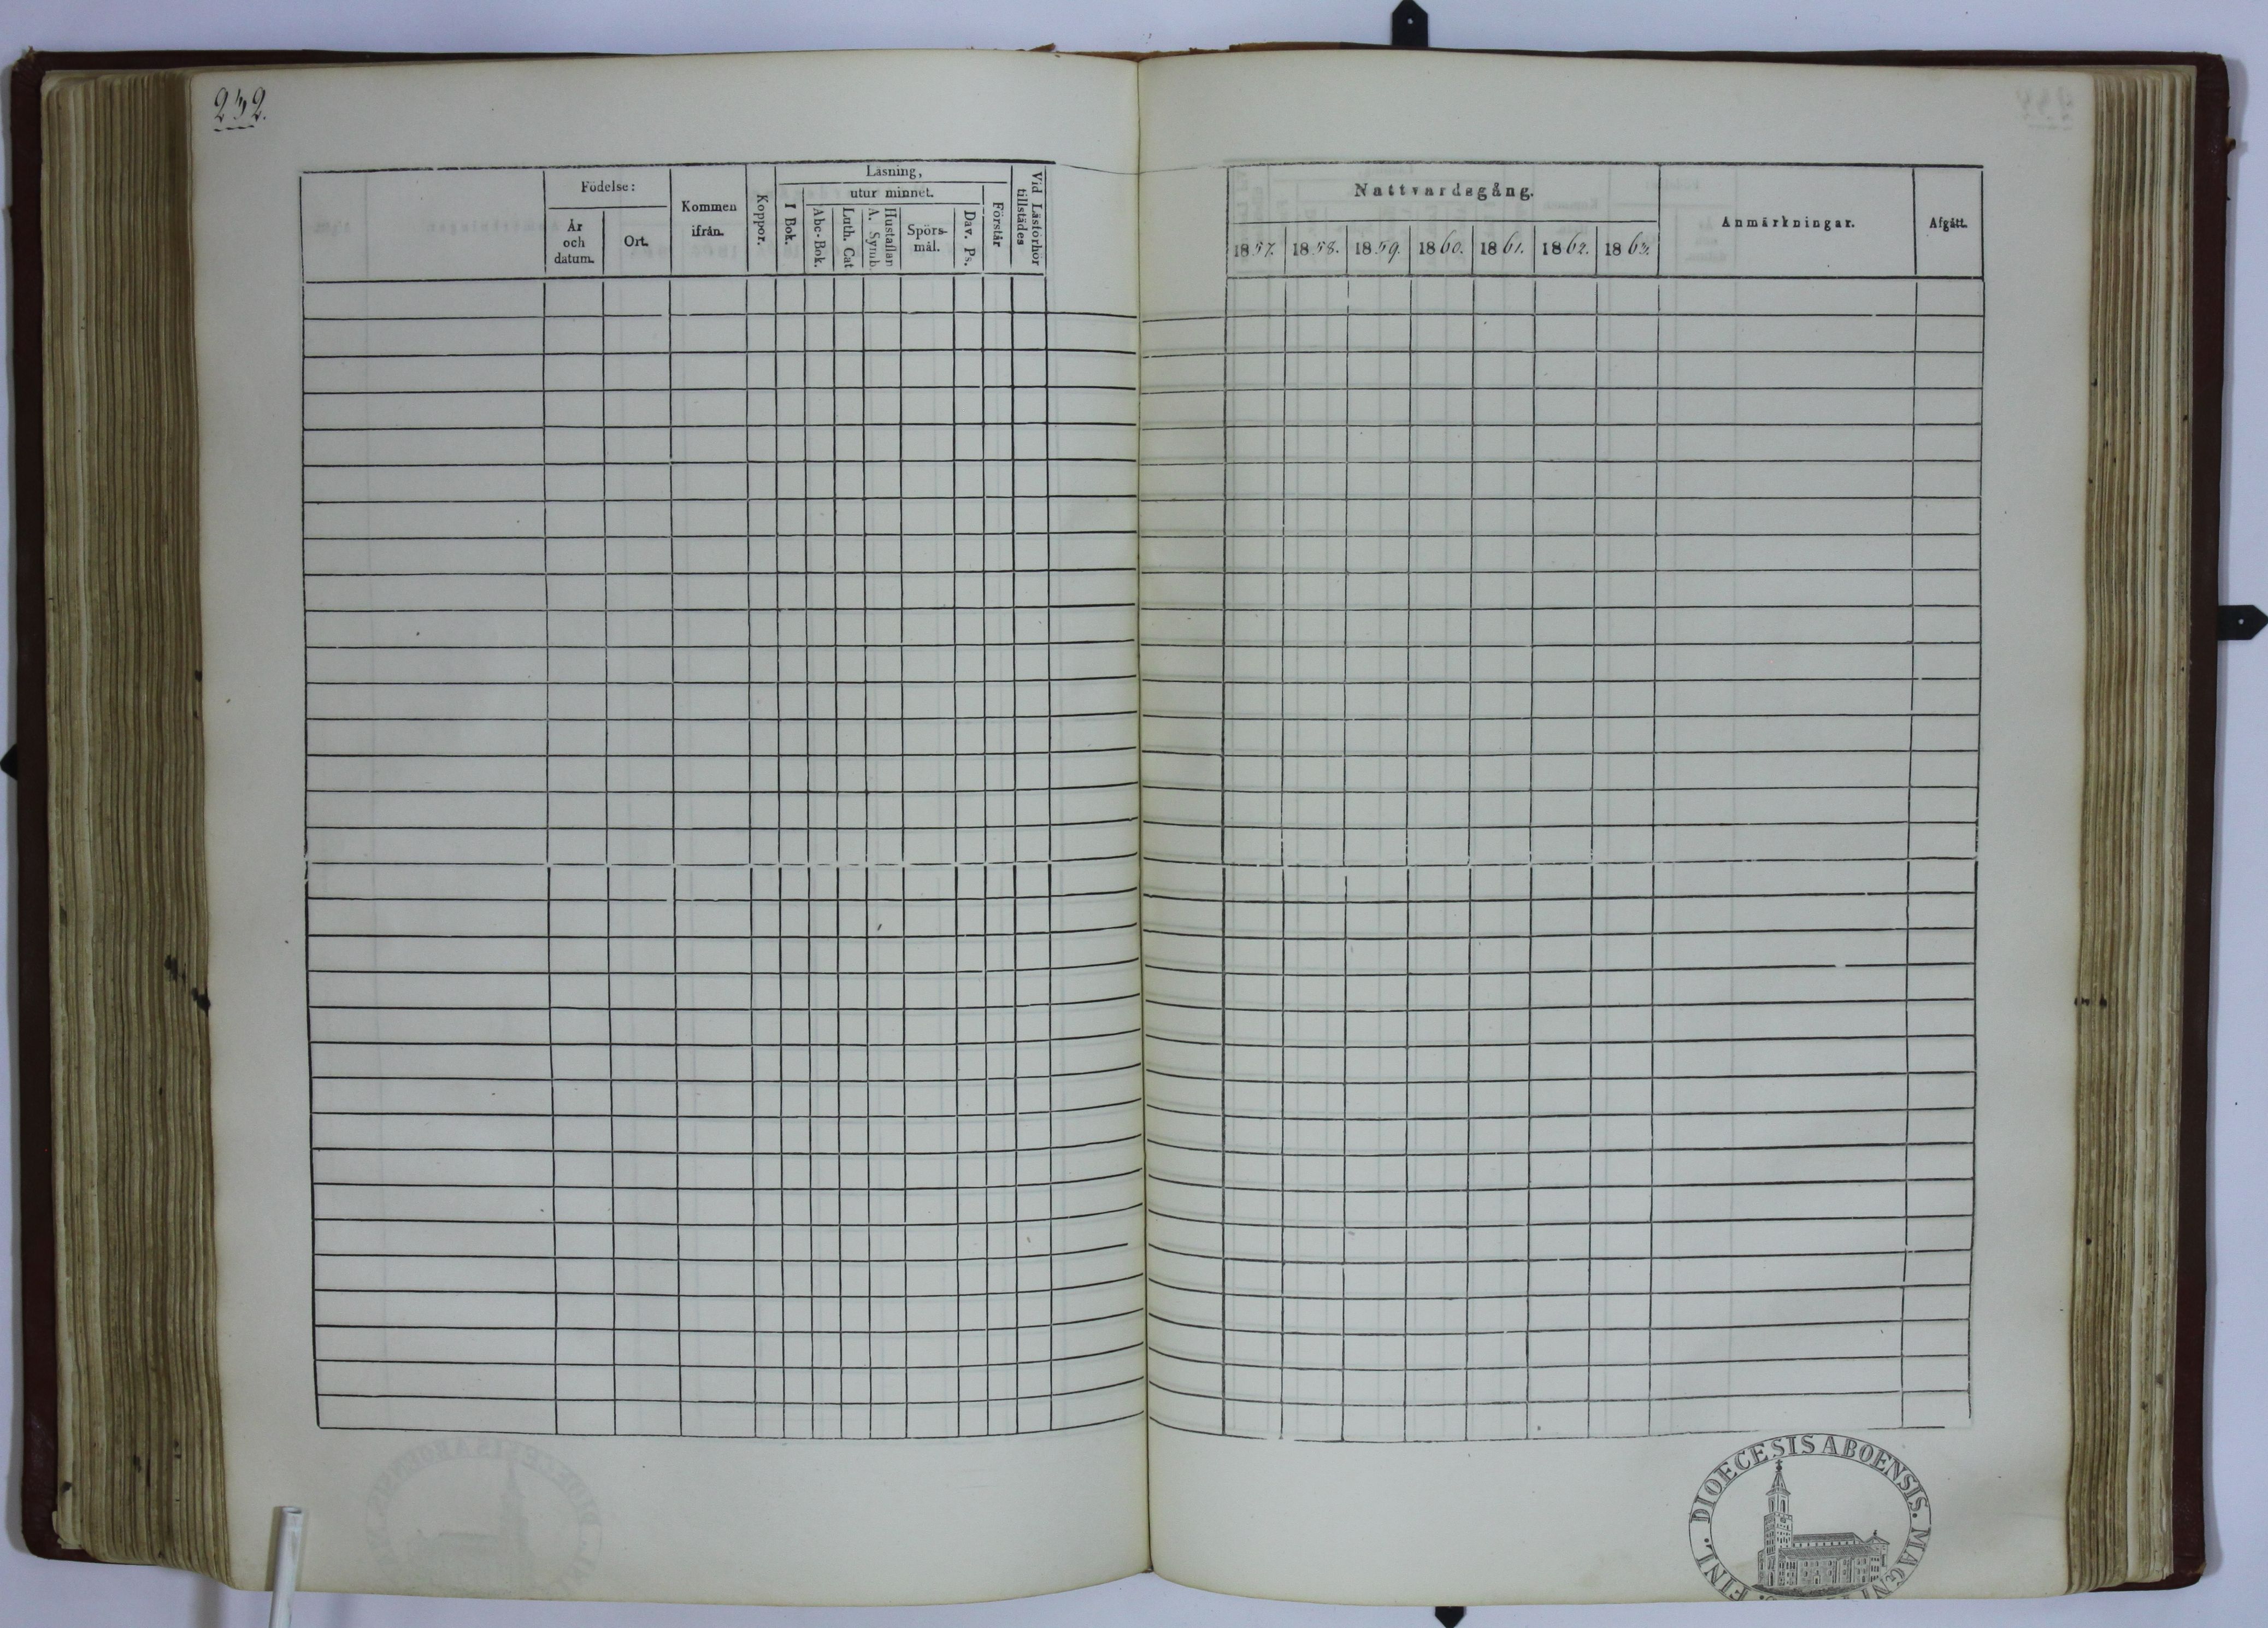 232.
Födelse:
År
och
datum.
Ort.
Kommen
ifrån.
Koppor.
Läsning,
I Bok.
utur minnet.
Abc-Bok.
Luth. Cat
Hustaflan
A. Symb.
Spörs-
mål.
Dav. Ps.
Förstår
Vid Läsförhör
tillstädes
Nattvardsgång.
1857. 1858. 1859. 1860. 1861. 1862. 1863.
Anmärkningar.
Afgått.
DIOECESIS ABOENSIS.